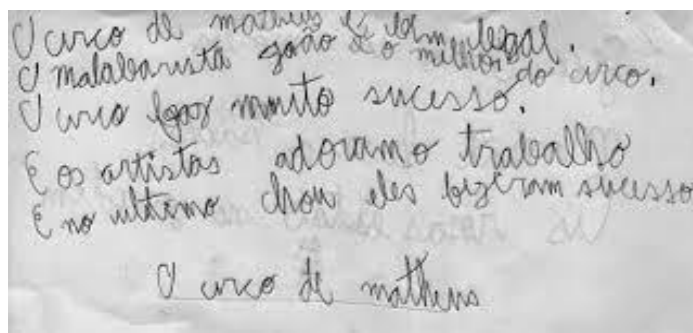 O circo de matheus é bem legal.
O malabarista joão é o milhor do circo.
O circo faz muito sucesso.
E os artistas adoramo trabalho
E no ultimo chou eles bizeram sucesso
O circo de matheus